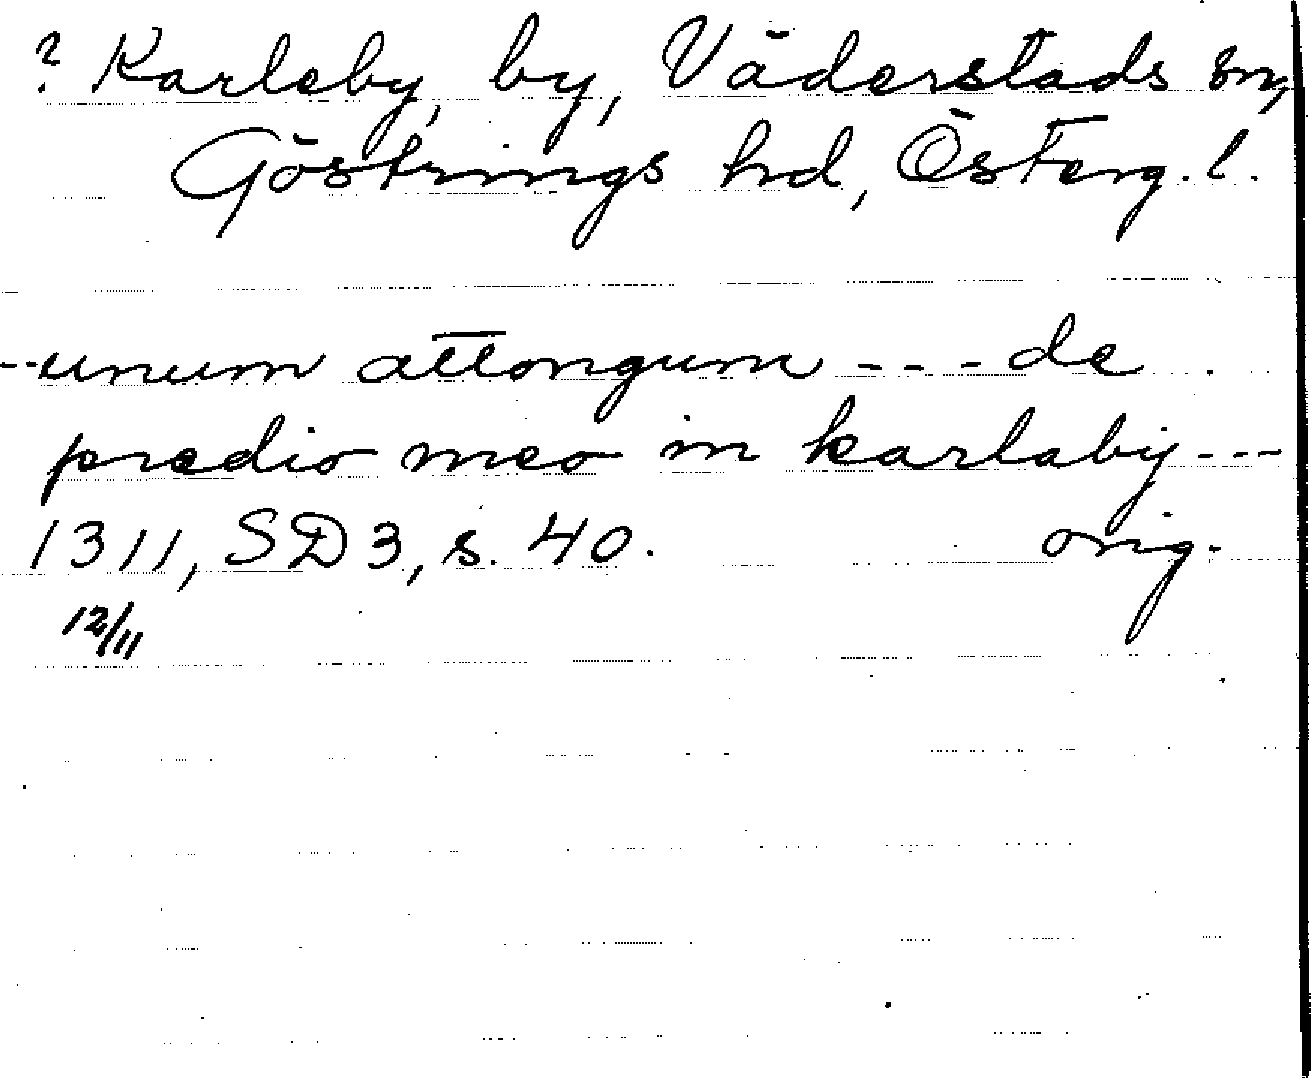 ? Karleby, by, Väderstads sn,
Göstrings hd, Österg. l.
--unum attongum --- de
predio meo in karlaby ---
1311, SD3, s. 40. orig.
12/11